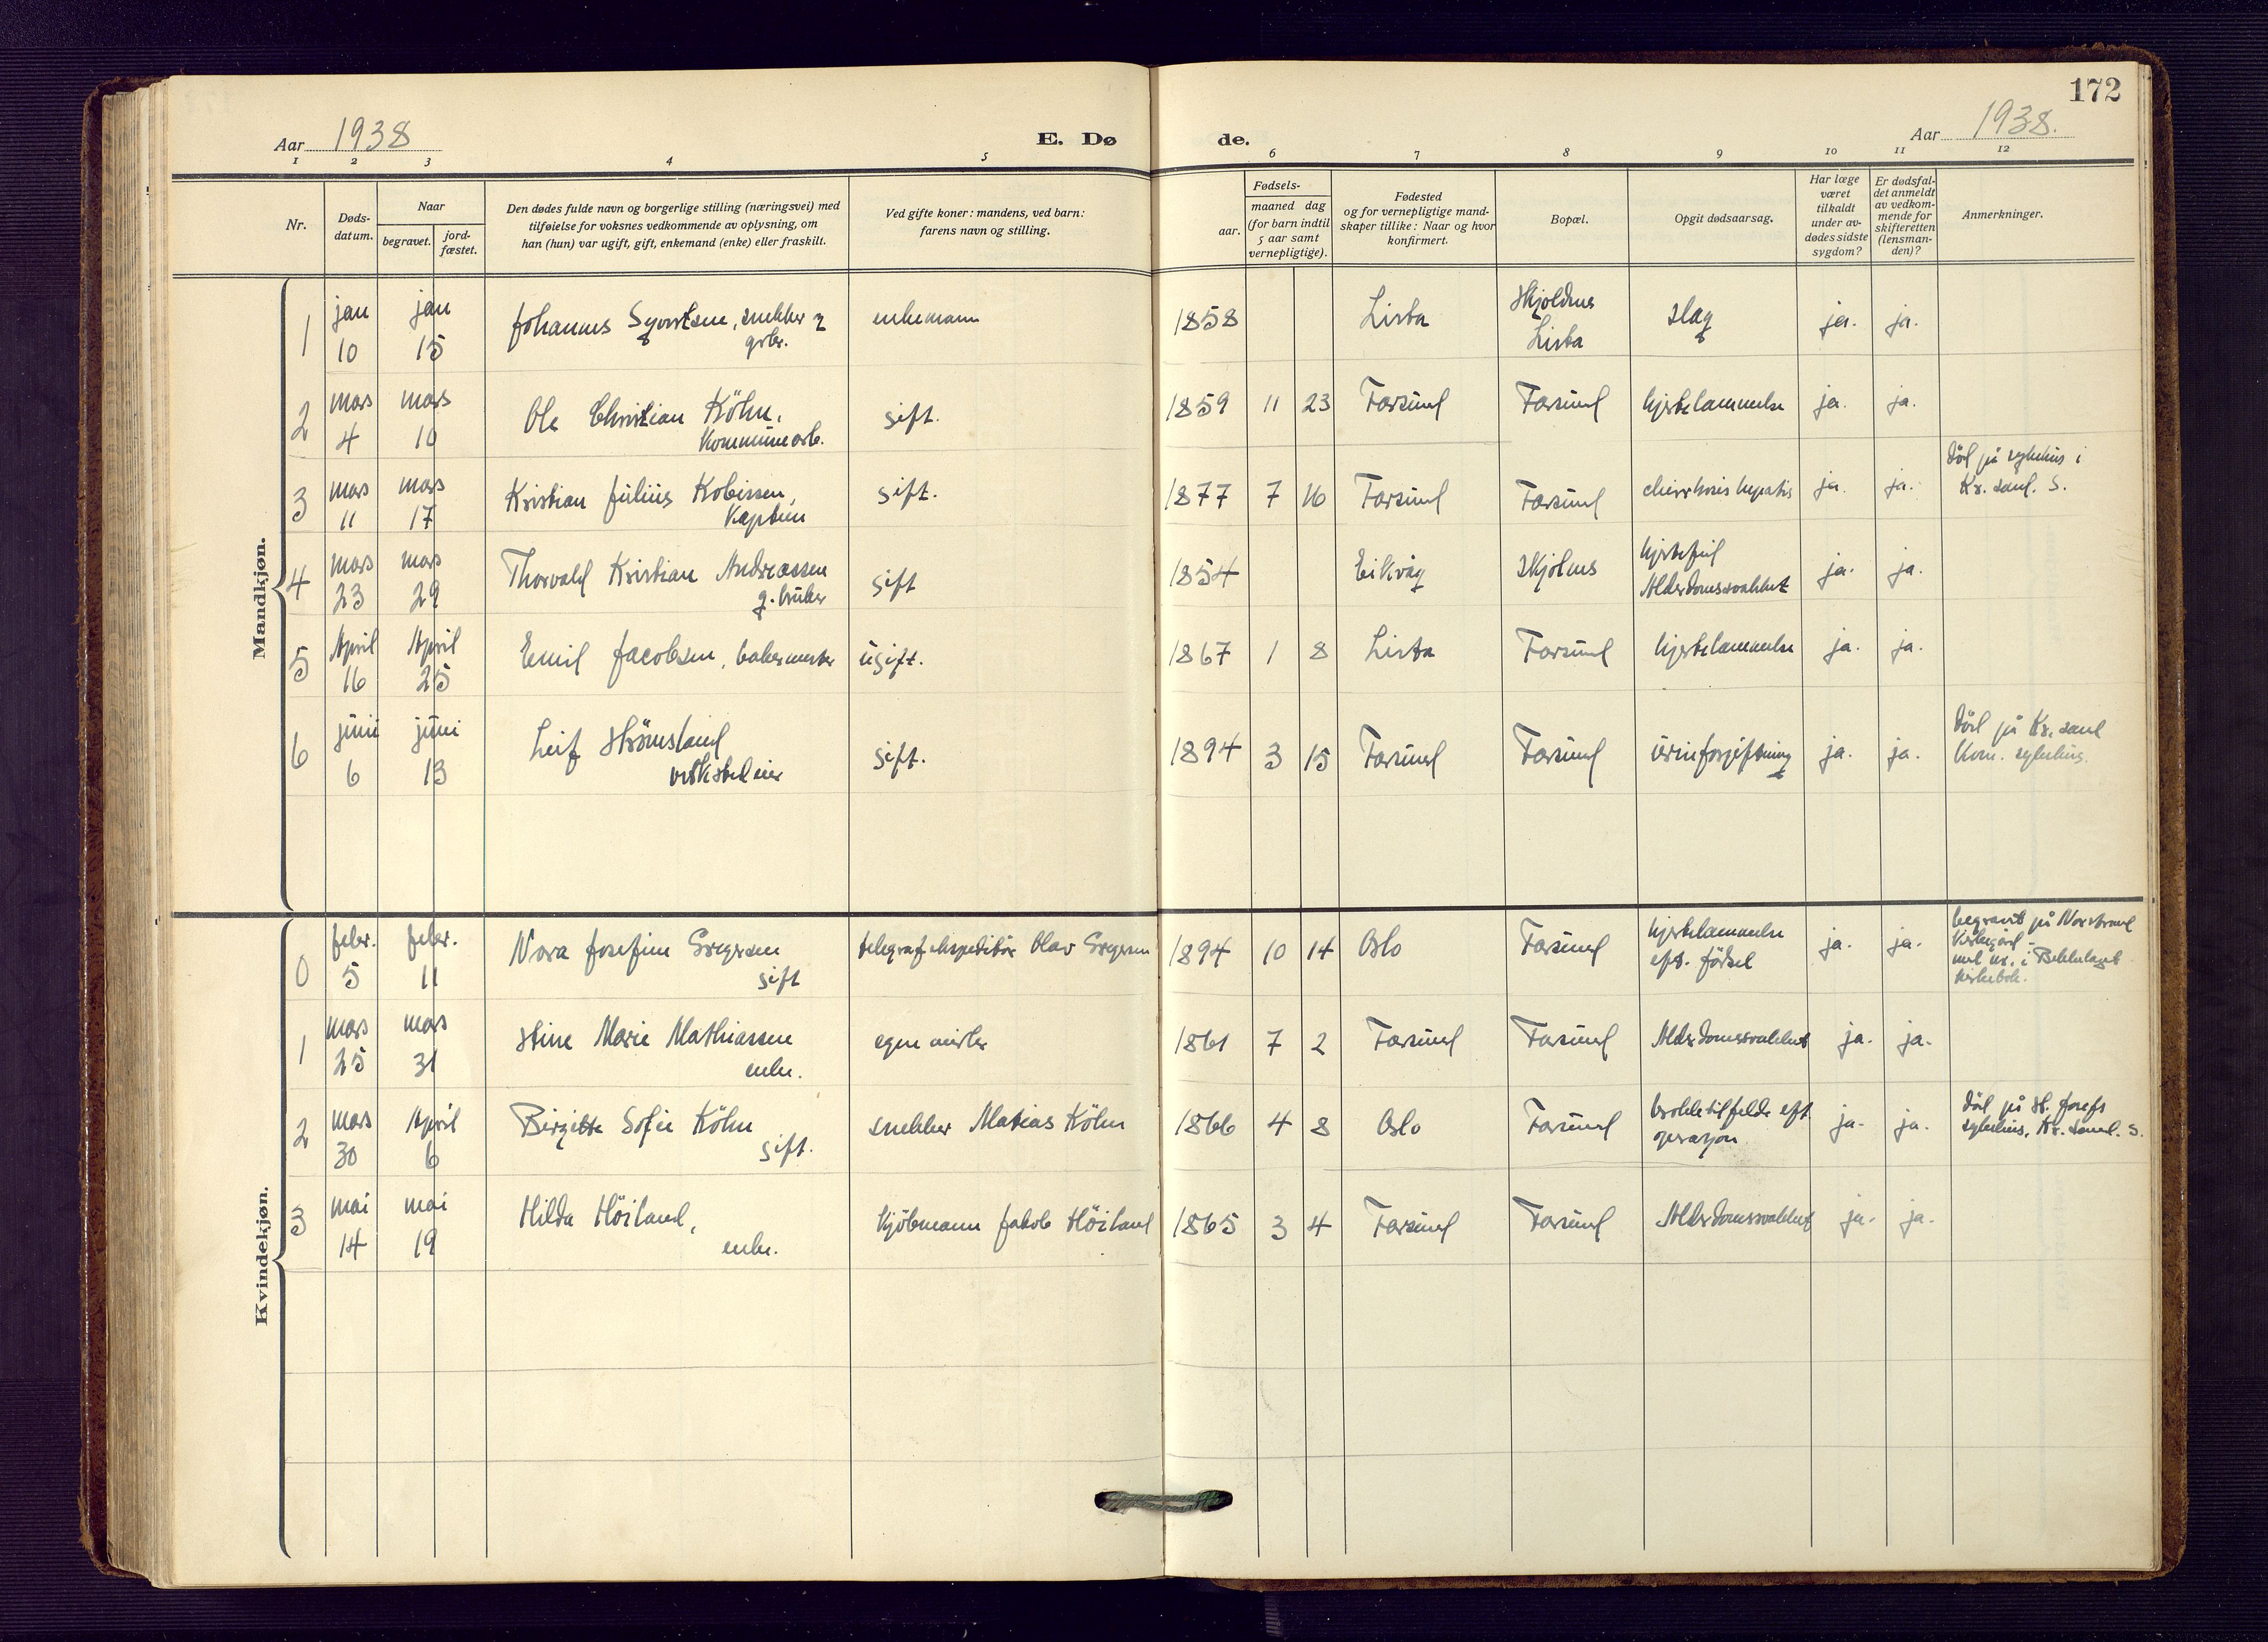 172
Aar 1938
E. Dø
de.
Aar 1938.
1 2 3 4 5 6 7 8 9 10 11 12
Nr.
Døds-
datum.
Naar
begravet.
jord-
fæstet.
Den dødes fulde navn og borgerlige stilling (næringsvei) med
tilføielse for voksnes vedkommende av oplysning, om
han (hun) var ugift, gift, enkemand (enke) eller fraskilt.
Ved gifte koner: mandens, ved barn:
farens navn og stilling.
Fødsels-
aar.
maaned dag
(for barn indtil
5 aar samt
vernepligtige).
Fødested
og for vernepligtige mand-
skaper tillike: Naar og hvor
konfirmert.
Bopæl.
Opgit dødsaarsag.
Har læge
været
tilkaldt
under av-
dødes sidste
sygdom?
Er dødsfal-
det anmeldt
av vedkom-
mende for
skifteretten
(lensman-
den)?
Anmerkninger.
Mandkjøn.
1 jan 10 jan 15 Johannes Syvertsen, snekker
grbr.
enkemann 1858 Lista
Lista
slag ja. ja.
2 mars 4 mars 10 Ole Christian Köhn,
Kommunearb.
gift. 1859 11 23 Farsund Farsund hjertelammelse ja. ja.
3 mars 11 mars 17 Kristian Julius
Kaptein
gift. 1877 7 16 Farsund Farsund hepatis ja. ja.
Död på sykehus i
Kr.sand. S.
4 mars 23 mars 29 Thorvald Kristian Andreassen
g.bruker
gift 1854 Eikvåg Skjolnes hjertefeil
Alderdomssvakhet
ja. ja.
5 April 16 April 25 Emil Jacobsen, bakermester ugift. 1867 1 8 Lista Farsund hjertelammelse ja. ja.
6 juni 6 juni 13 Leif Strömsland
verkstedeier
gift. 1894 3 15 Farsund Farsund urinforgiftning ja. ja.
Död på Kr.sand
Kom. sykehus.
Kvindekjøn.
0 febr. 5 febr. 11 Nora Josefine Gregersen
gift
telegrafekspeditör Olav Gregersen 1894 10 14 Oslo Farsund hjertelammelse
eft. födsel
ja. ja.
begravet på Norstrand
Kirkegård -
i Bekkelaget
kirkebok.
1 mars 25 mars 31 Stine Marie Mathiassen
enke.
egne midler 1861 7 2 Farsund Farsund Alderdomssvakhet ja. ja.
2 mars 30 April 6 Birgitte Sofie Köhn
gift.
snekker Matias Köhn 1866 4 8 Oslo Farsund brokktilfelde eft
operasjon
ja. ja.
död på St. Josefs
sykehus, Kr.sand. S.
3 mai 14 mai 19 Hilda Höiland,
enke.
kjöbmann Jakob Höiland 1865 3 4 Farsund Farsund Alderdomssvakhet ja. ja.